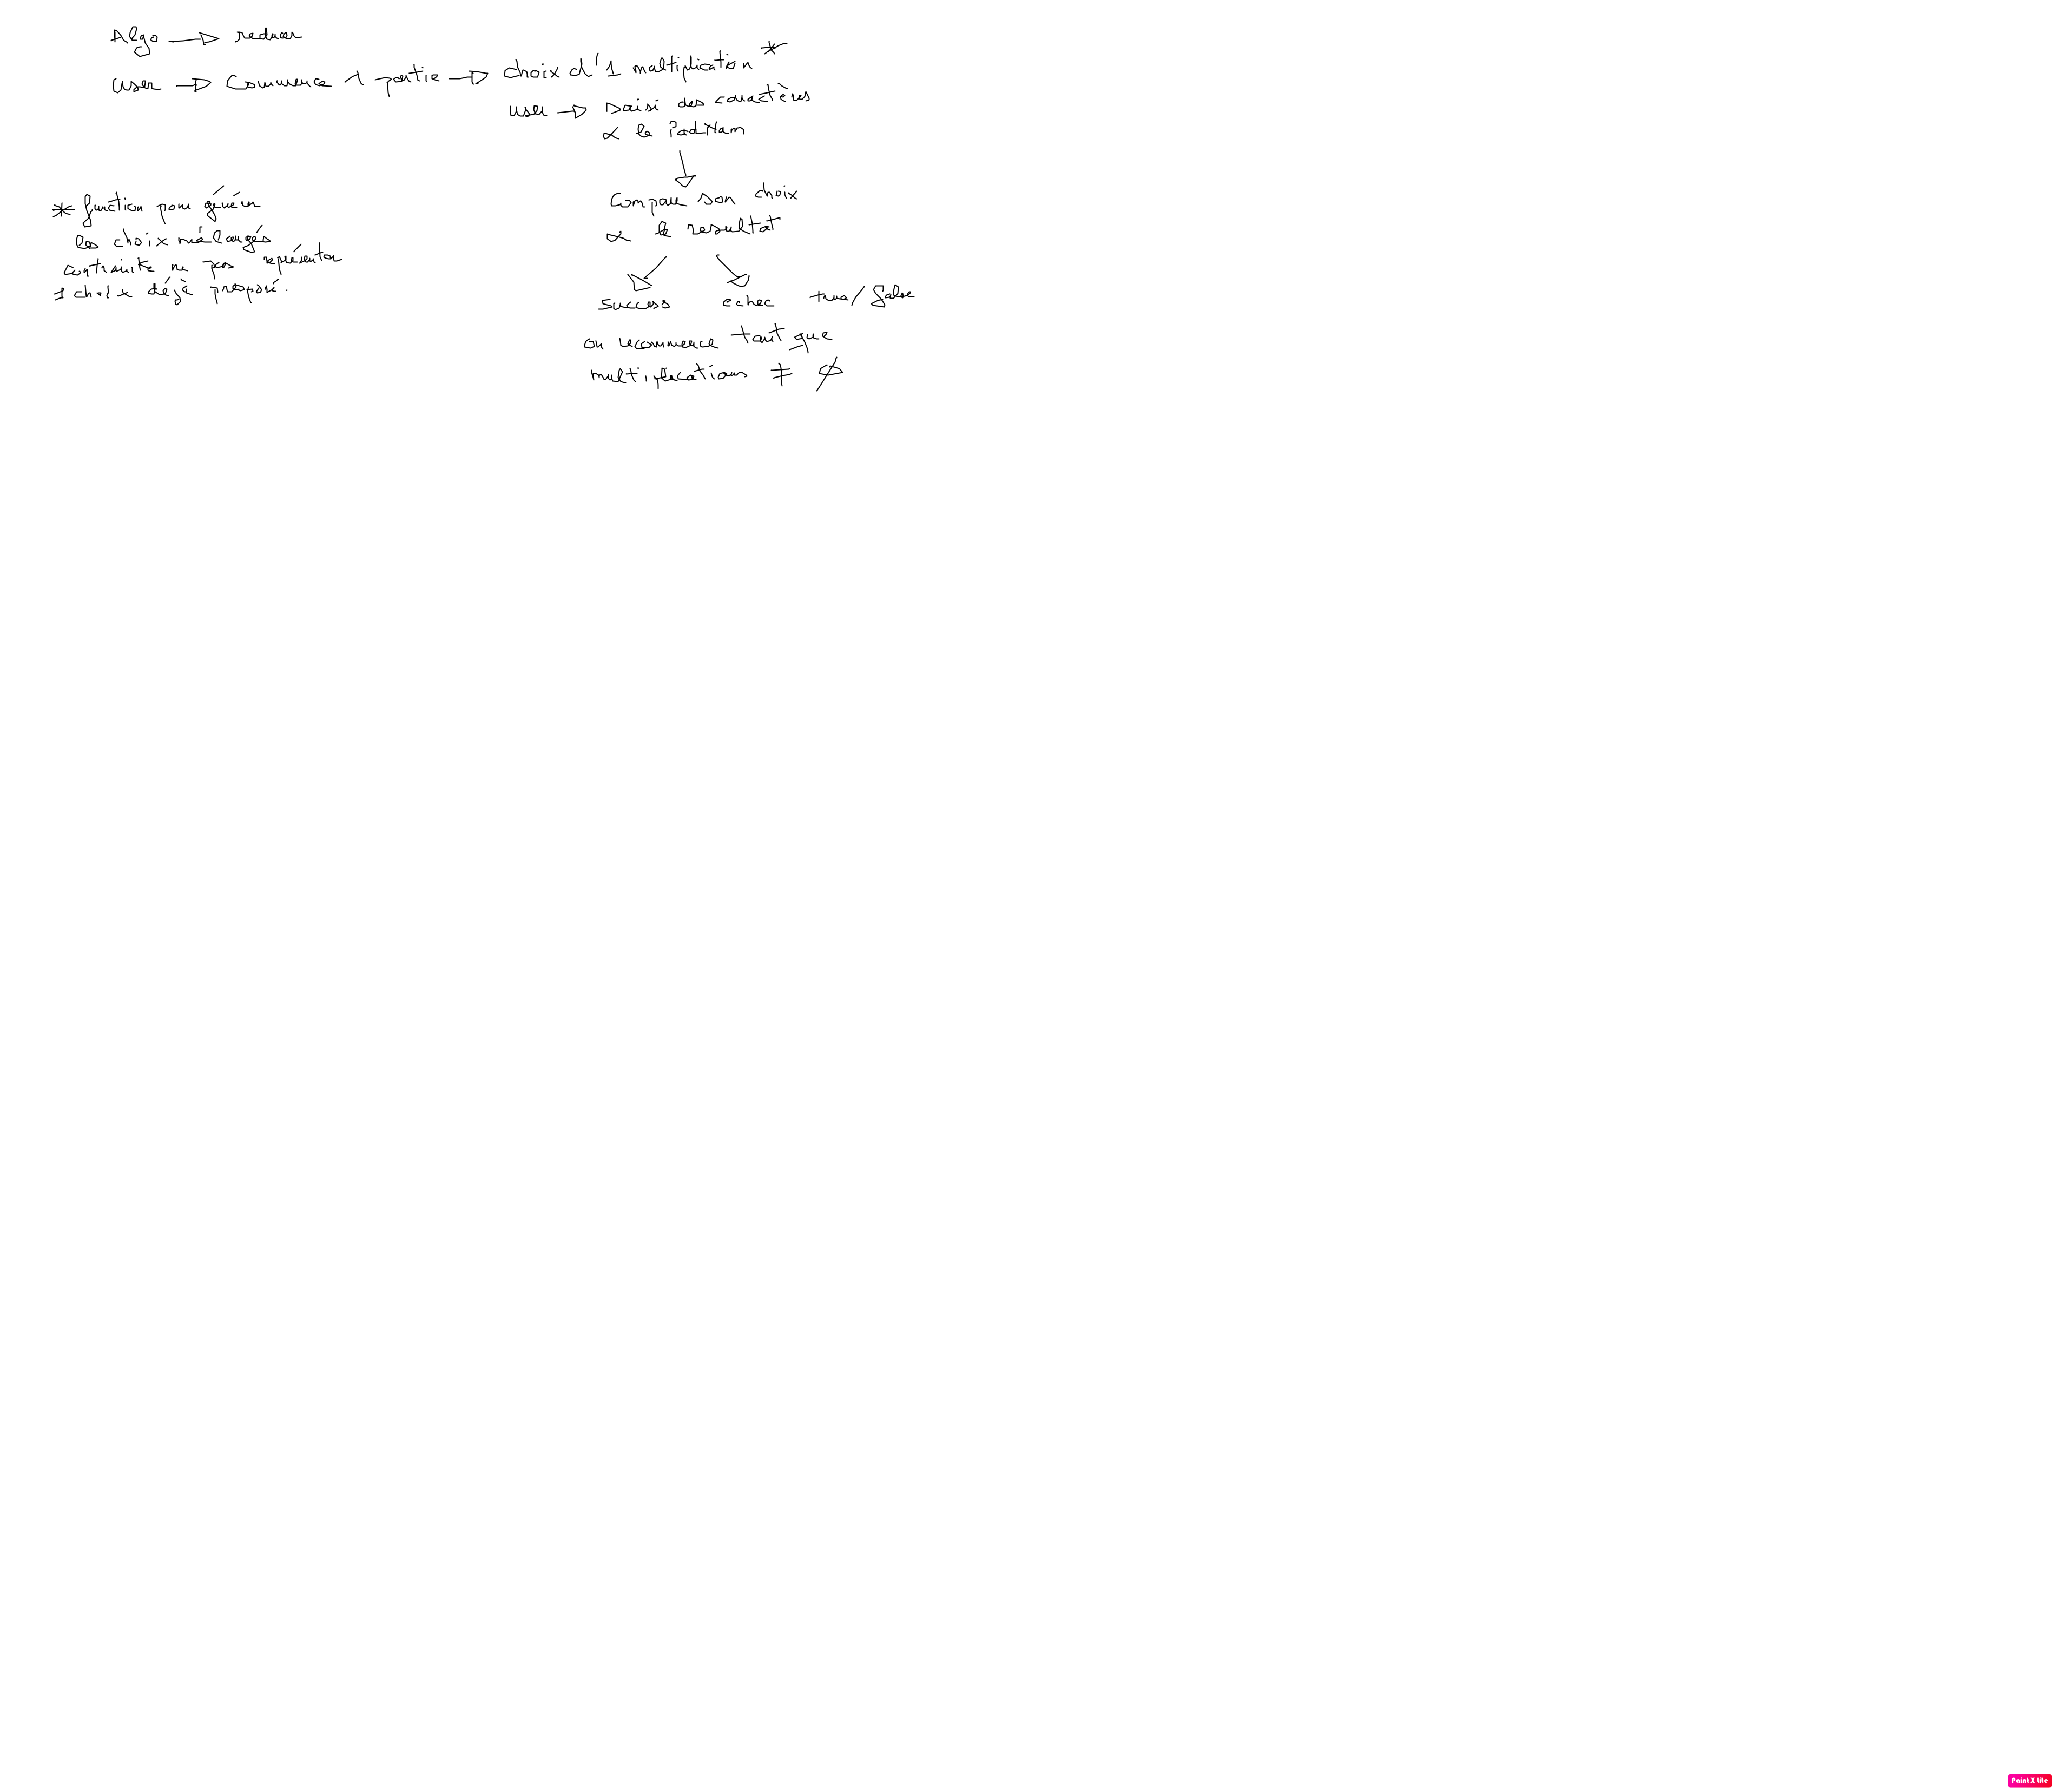 Algo → reducer
user → Commence 1 partie → choix d'1 multiplication *
user → saisi des caractères
∝ le PadNum
Compare son choix
∝ le resultat
success echec true/false
on recommence tant que
multiplications ≠ ∅
* function pour générer
les choix mélangés
contrainte ne pas représenter
1 choix déjà proposé.
Paint X Lite